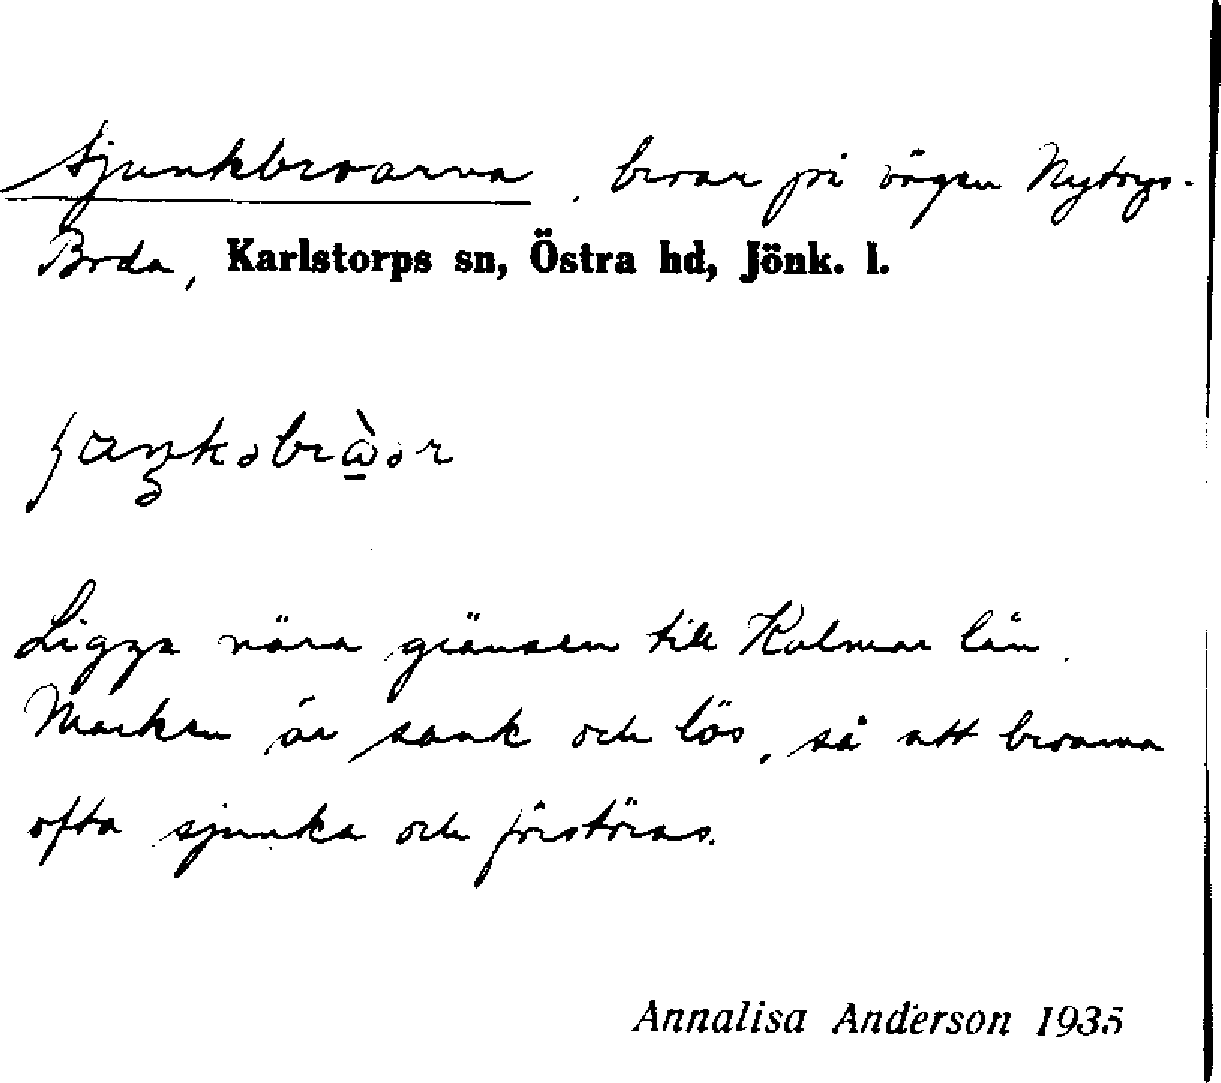 Sjunkbroarna, broar på vägen Nytorp-
Boda, Karlstorps sn, Östra hd, Jönk. l.
Ligga nära gränsen till Kalmar län.
Marken är sank och lös, så att broarna
ofta sjunka och förstöras.
Annalisa Anderson 1935